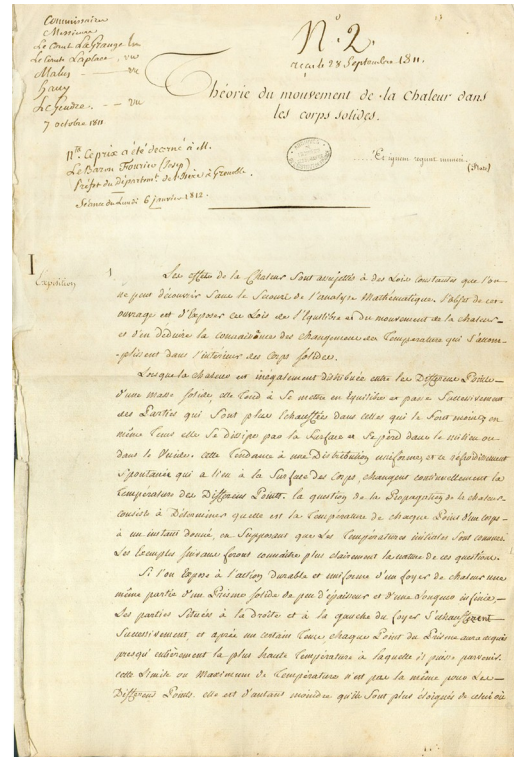 Commissaires
Messieurs
Le Comte LaGrange vu
Le Comte Laplace vu
Malus vu
Hauy
Le Gendre vu
7 octobre 1811
N.º 2.
reçu le 28 Septembre 1811.
Théorie du mouvement de la Chaleur dans
les corps solides.
Ce prix a été décerné à M.
Le Baron Fourier (Josep)
Préfet du départem.t de l'Isère à Grenoble
Séance du Lundi 6 janvier 1812.
Et ignem regunt numeri.
(Plato)
I
Exposition
1
Les effets de la Chaleur Sont assujettis à des Lois constantes que l'on
ne peut découvrir Sans le Secours de l'analyse Mathématique. l'objet de cet
ouvrage est d'Exposer ces Lois de l'Equilibre et du mouvement de la chaleur
et d'en déduire la connaissance des changemens de Température qui S'accom-
plissent dans l'intérieur des Corps solides.
Lorsque la chaleur est inégalement distribuée entre les Différens Points
d'une masse solide, elle Tend à Se mettre en Equilibre et passe Successivement
des Parties qui Sont plus Echauffées dans celles qui le Sont moins; en
même Tems elle Se dissipe par la Surface et Se perd dans le milieu ou
dans le Vuide. cette Tendance à une Distribution uniforme, et ce réfroidissement
Spontanée qui a lieu à la Surface des Corps, changent continuellement la
Température des Différens Points. la question de la Propagation de la chaleur
consiste à Déterminer quelle est la Température de chaque Point d'un corps
à un instant donné, en Supposant que les Températures initiales Sont connues.
Les Exemples suivans feront connaître plus clairement la nature de ces questions.
Si l'on Expose à l'action durable et uniforme d'un foyer de chaleur une
même partie d'un Prisme solide de peu d'épaisseur et d'une longueur infinie,
Les parties Situées à la droite et à la gauche du foyer S'échauffent
Successivement, et après un certain Tems chaque Point du Prisme aura acquis
presqu'entièrement la plus haute Température à laquelle il puisse parvenir.
cette Limite ou Maximum de Température n'est pas la même pour Les
Différens Points. elle est d'autant moindre qu'ils Sont plus éloignés de celui où